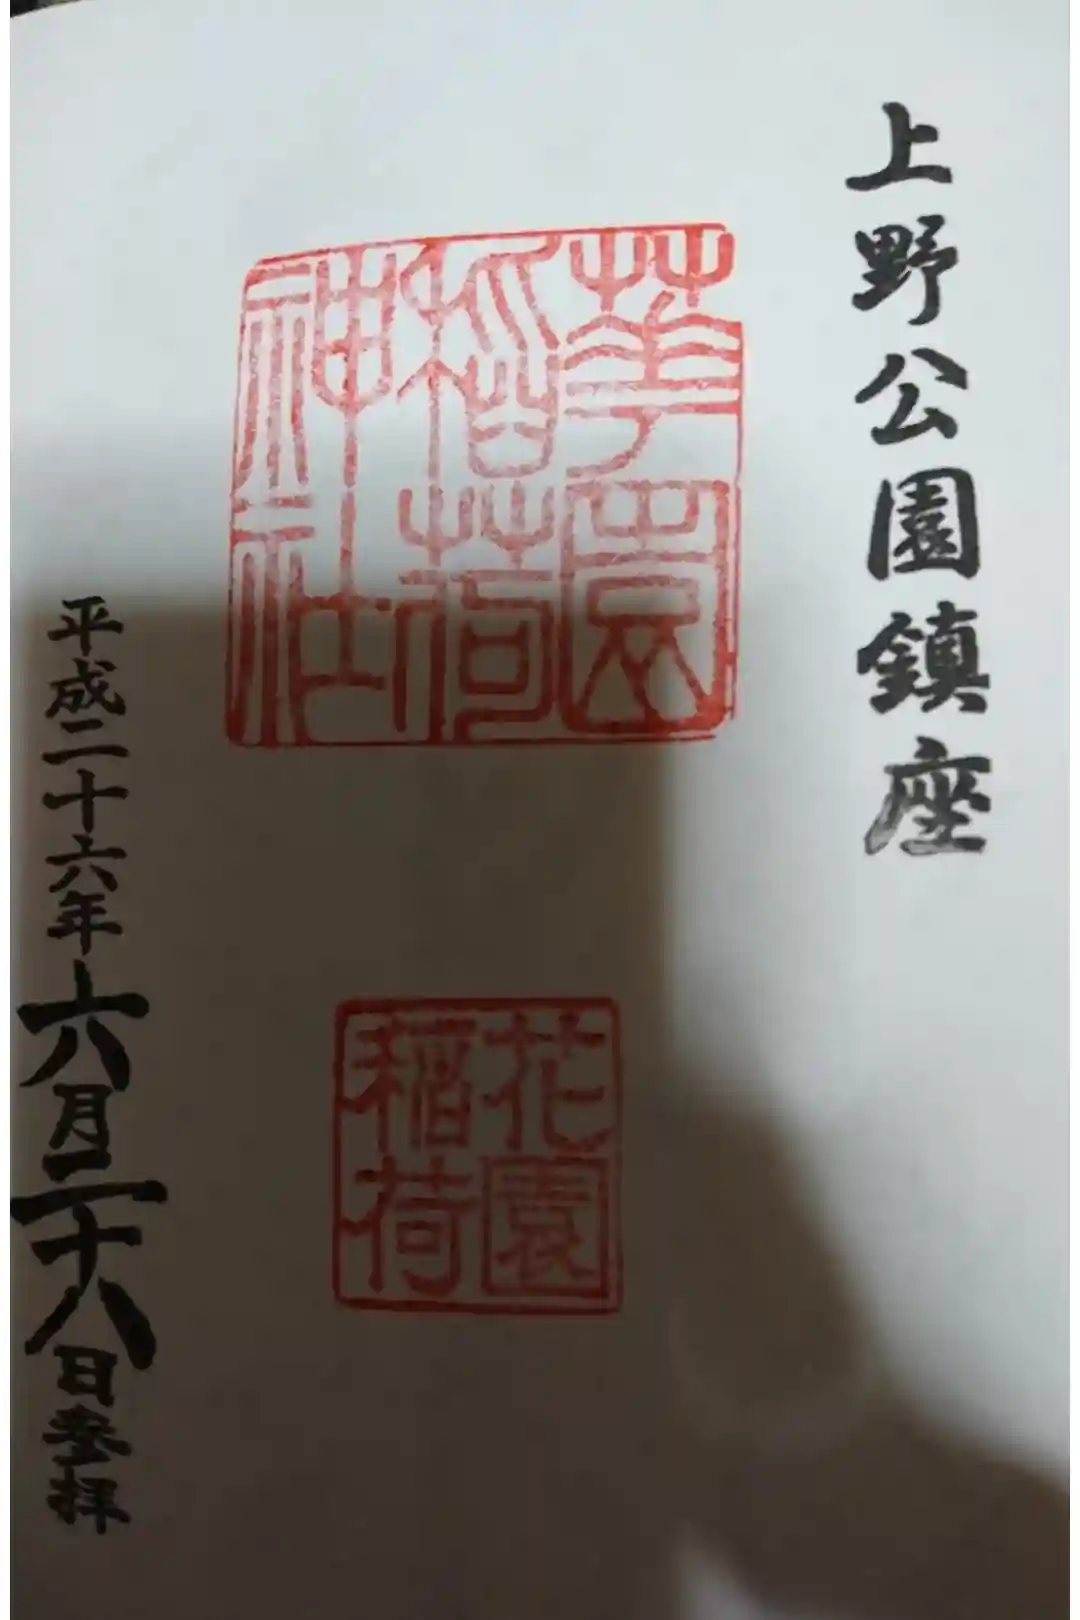 上野公園鎮座
華園
稲荷
神社
花園
稲荷
平成二十六年六月二十八日参拝